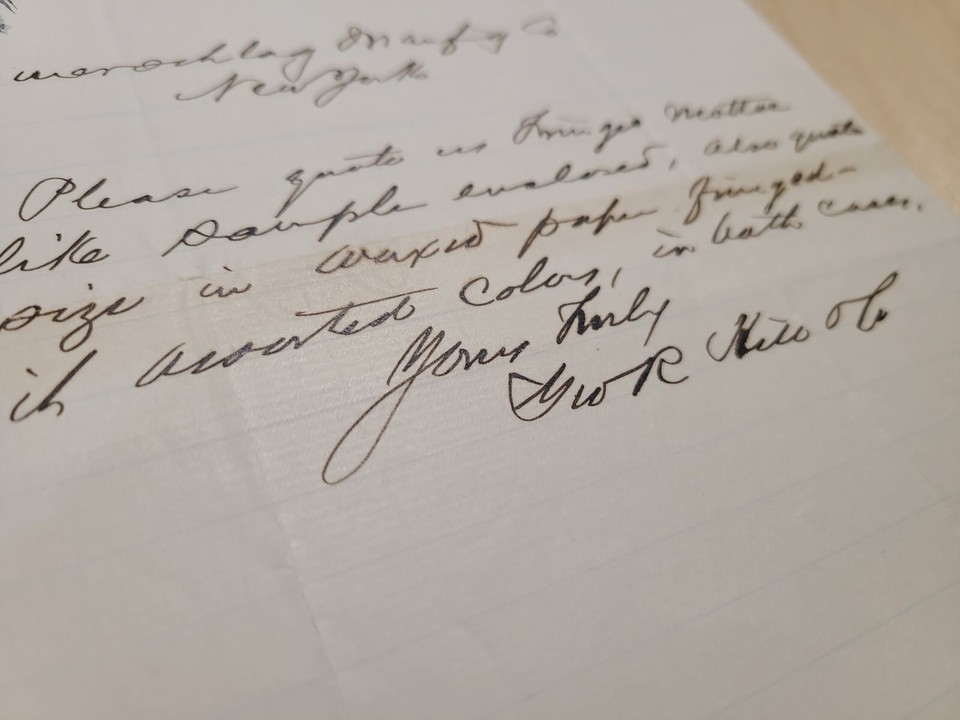 Manufg Co
New York
Please quote us Fringed Matter
like sample enclosed, also quote
size in waxed paper fringed-
in assorted colors, in both cases.
Yours Truly
Geo R Hill & Co